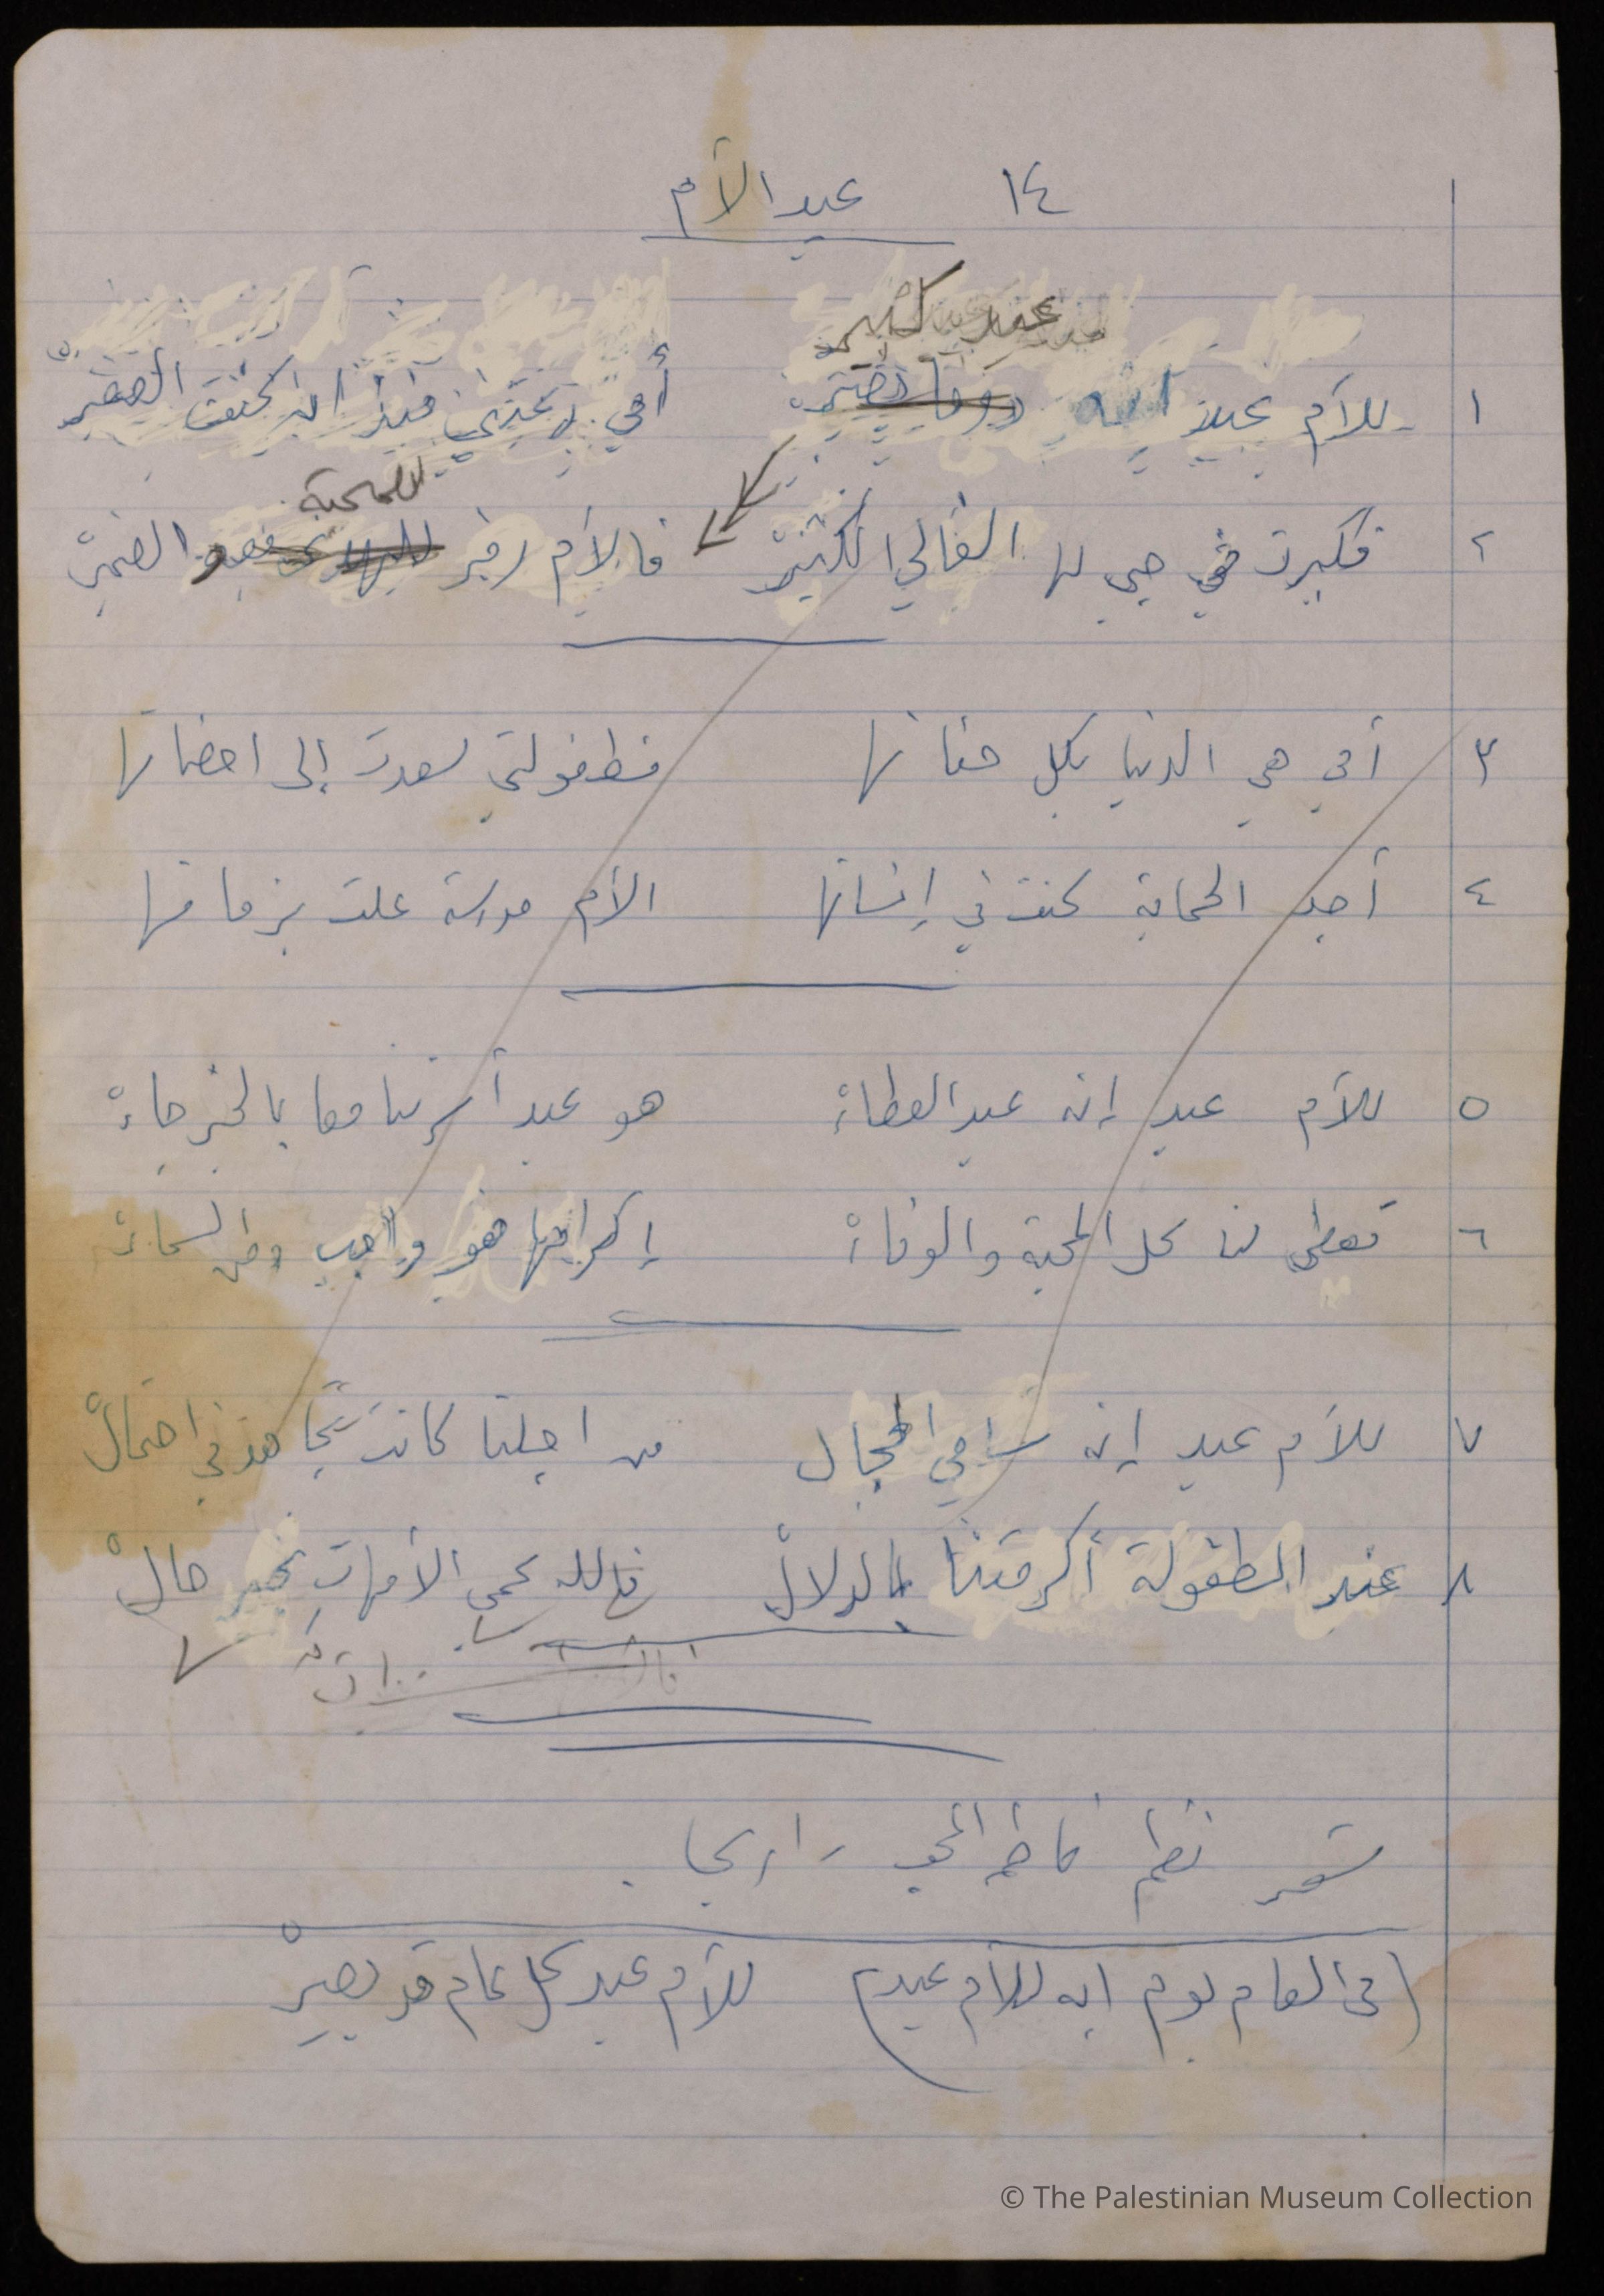 ١٤ عيد الأم
عيد كبير
١ للأم عيد إنه دوما أمي رعتني منذ ان كنت الصغير
للمحبة
٢ فكبرت في حبي لها الغالي الكثير فالأم رمز الضمير
٣ أمي هي الدنيا بكل حنانها فطفولتي سعدت إلى احضانها
٤ أجد الحماية كنت في إنسانها الأم مدرسة علت بزمانها
٥ للأم عيد إنه عيد العطاء هو عيد أسرتنا معا بالخير جاء
٦ تعطي لنا كل المحبة والوفاء إكرامها هو واجب وفي السماء
٧ للأم عيد إنه سامي المجال من اجلنا كانت تجاهد في احتمال
٨ عند الطفولة أكرمتنا بالدلال فالله يحمي الأمهات بخير حال
شعر نظم فاطمة المحب - اريحا.
(في العام يوم انه للأم عيد) للأم عيد كل عام قد يصير
© The Palestinian Museum Collection